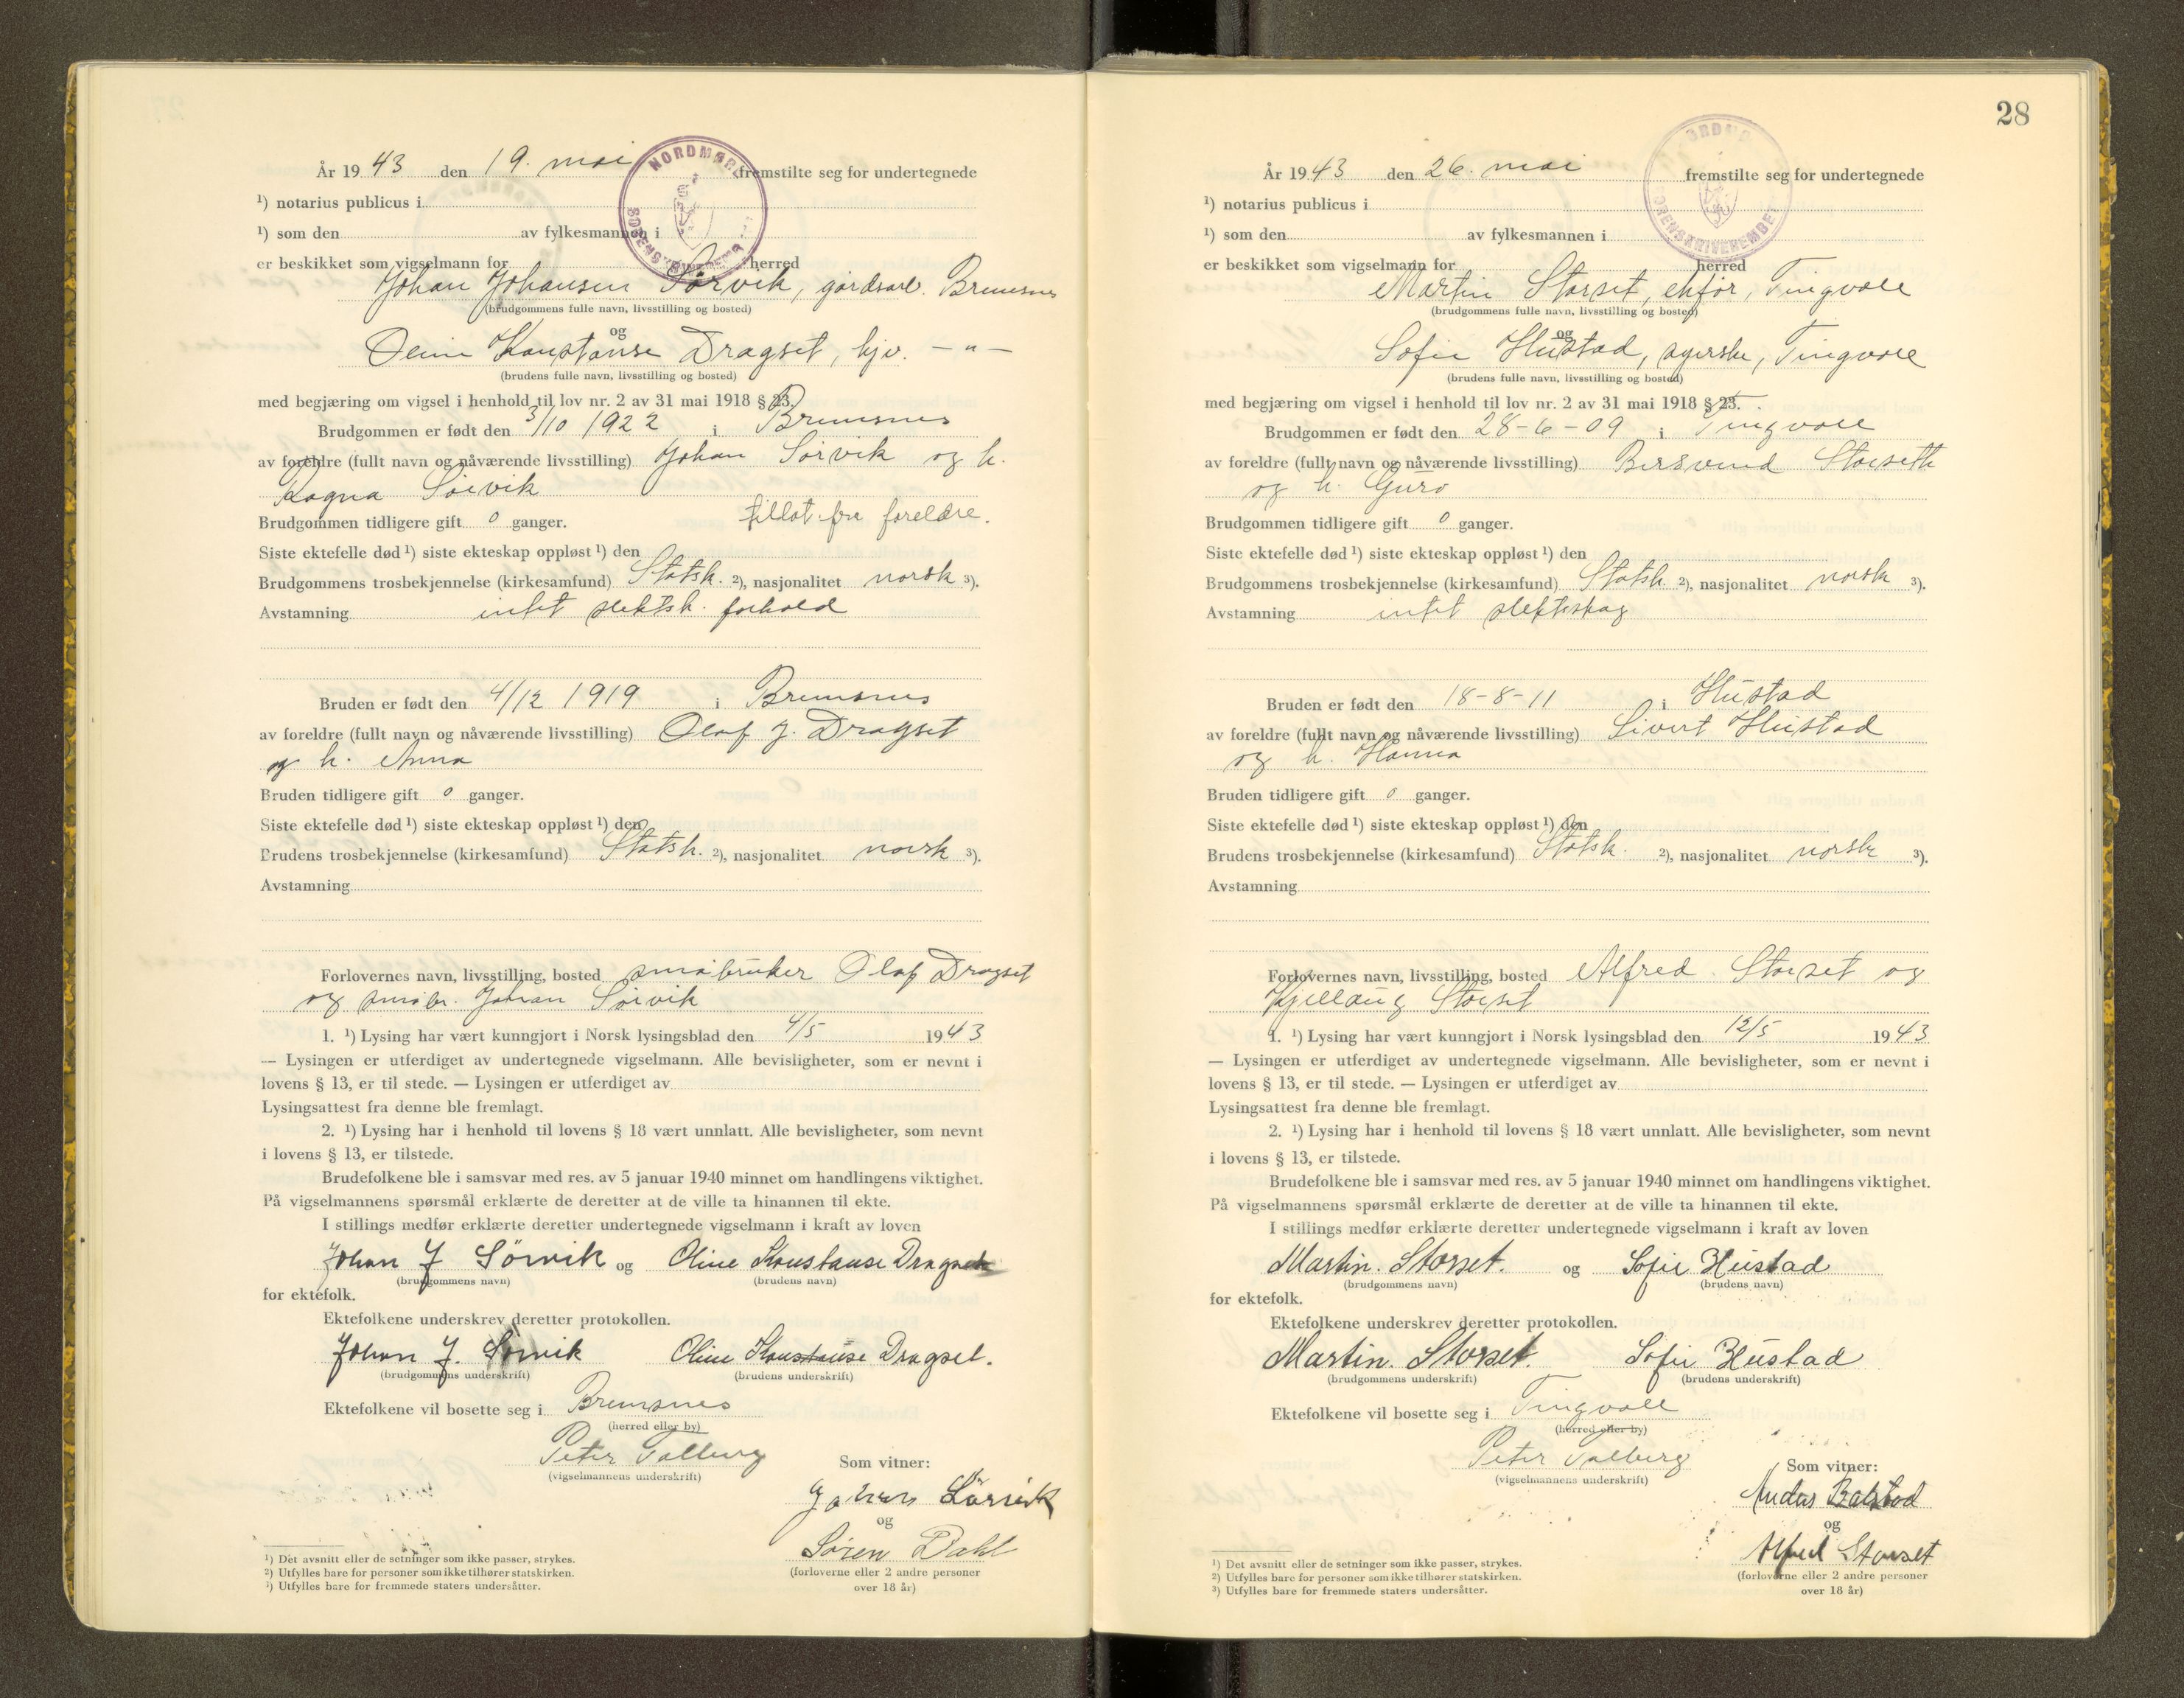 År 1943 den 19. mai fremstilte seg for undertegnede
¹) notarius publicus i
¹) som den av fylkesmannen i
er beskikket som vigselmann for herred
Johan Johansen Sørvik, gårdsarb. Bremsnes
(brudgommens fulle navn, livsstilling og bosted)
og
Oline Konstanse Dragset, hjv. — " —
(brudens fulle navn, livsstilling og bosted)
med begjæring om vigsel i henhold til lov nr. 2 av 31 mai 1918 § 23.
Brudgommen er født den 3/10 1922 i Bremsnes
av foreldre (fullt navn og nåværende livsstilling) Johan Sørvik og h.
Ragna Sørvik
Brudgommen tidligere gift 0 ganger. tillat. fra foreldre.
Siste ektefelle død ¹) siste ekteskap oppløst ¹) den
Brudgommens trosbekjennelse (kirkesamfund) Statsk. ²), nasjonalitet norsk ³).
Avstamning intet slektsk. forhold
Bruden er født den 4/12 1919 i Bremsnes
av foreldre (fullt navn og nåværende livsstilling) Olaf J. Dragset
og h. Anna
Bruden tidligere gift 0 ganger.
Siste ektefelle død ¹) siste ekteskap oppløst ¹) den
Brudens trosbekjennelse (kirkesamfund) Statsk. ²), nasjonalitet norsk ³).
Avstamning
Forlovernes navn, livsstilling, bosted småbruker Olaf Dragset
og småbr. Johan Sørvik
1. ¹) Lysing har vært kunngjort i Norsk lysingsblad den 4/5 1943
— Lysingen er utferdiget av undertegnede vigselmann. Alle bevisligheter, som er nevnt i
lovens § 13, er til stede. — Lysingen er utferdiget av
Lysingsattest fra denne ble fremlagt.
2. ¹) Lysing har i henhold til lovens § 18 vært unnlatt. Alle bevisligheter, som nevnt
i lovens § 13, er tilstede.
Brudefolkene ble i samsvar med res. av 5 januar 1940 minnet om handlingens viktighet.
På vigselmannens spørsmål erklærte de deretter at de ville ta hinannen til ekte.
I stillings medfør erklærte deretter undertegnede vigselmann i kraft av loven
Johan J Sörvik og Oline Konstanse Dragset
(brudgommens navn) (brudens navn)
for ektefolk.
Ektefolkene underskrev deretter protokollen.
Johan J. Sörvik Oline Konstanse Dragset.
(brudgommens underskrift) (brudens underskrift)
Ektefolkene vil bosette seg i Bremsnes
(herred eller by)
Peter Talberg
(vigselmannens underskrift)
Som vitner:
Johan Sørvik
og
Søren Dahl
(forloverne eller 2 andre personer
over 18 år)
¹) Det avsnitt eller de setninger som ikke passer, strykes.
²) Utfylles bare for personer som ikke tilhører statskirken.
³) Utfylles bare for fremmede staters undersåtter.
NORDMØRE
SORENSKRIVEREMBET
28
År 1943 den 26. mai fremstilte seg for undertegnede
¹) notarius publicus i
¹) som den av fylkesmannen i
er beskikket som vigselmann for herred
Martin Storset, Tingvoll
(brudgommens fulle navn, livsstilling og bosted)
og
Sofie Hustad, syerske, Tingvoll
(brudens fulle navn, livsstilling og bosted)
med begjæring om vigsel i henhold til lov nr. 2 av 31 mai 1918 § 23.
Brudgommen er født den 28-6-09 i Tingvoll
av foreldre (fullt navn og nåværende livsstilling) Bersvend Storseth
og h. Guro
Brudgommen tidligere gift 0 ganger.
Siste ektefelle død ¹) siste ekteskap oppløst ¹) den
Brudgommens trosbekjennelse (kirkesamfund) Statsk ²), nasjonalitet norsk ³).
Avstamning intet slektskap
Bruden er født den 18-8-11 i Hustad
av foreldre (fullt navn og nåværende livsstilling) Sivert Hustad
og h. Hanna
Bruden tidligere gift 0 ganger.
Siste ektefelle død ¹) siste ekteskap oppløst ¹) den
Brudens trosbekjennelse (kirkesamfund) Statsk. ²), nasjonalitet norsk ³).
Avstamning
Forlovernes navn, livsstilling, bosted Alfred Storset og
Kjellaug Storset
1. ¹) Lysing har vært kunngjort i Norsk lysingsblad den 12/5 1943
— Lysingen er utferdiget av undertegnede vigselmann. Alle bevisligheter, som er nevnt i
lovens § 13, er til stede. — Lysingen er utferdiget av
Lysingsattest fra denne ble fremlagt.
2. ¹) Lysing har i henhold til lovens § 18 vært unnlatt. Alle bevisligheter, som nevnt
i lovens § 13, er tilstede.
Brudefolkene ble i samsvar med res. av 5 januar 1940 minnet om handlingens viktighet.
På vigselmannens spørsmål erklærte de deretter at de ville ta hinannen til ekte.
I stillings medfør erklærte deretter undertegnede vigselmann i kraft av loven
Martin. Storset. og Sofie Hustad
(brudgommens navn) (brudens navn)
for ektefolk.
Ektefolkene underskrev deretter protokollen.
Martin. Storset. Sofie Hustad
(brudgommens underskrift) (brudens underskrift)
Ektefolkene vil bosette seg i Tingvoll
(herred eller by)
Peter Talberg
(vigselmannens underskrift)
Som vitner:
Anders Balstad
og
Alfred Storset
(forloverne eller 2 andre personer
over 18 år)
¹) Det avsnitt eller de setninger som ikke passer, strykes.
²) Utfylles bare for personer som ikke tilhører statskirken.
³) Utfylles bare for fremmede staters undersåtter.